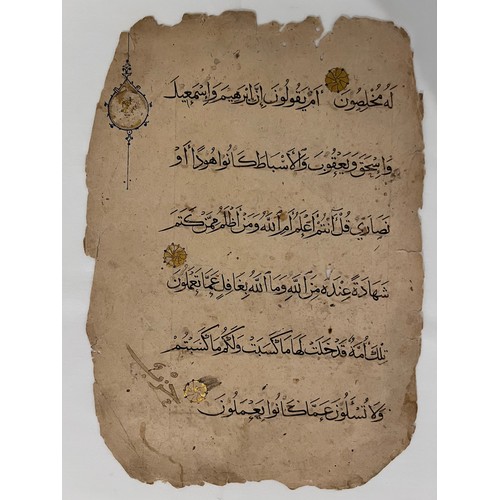 لَهُ مُخْلِصُونَ أَمْ يَقُولُونَ إِنَّ إِبْرٰهِيمَ وَإِسْمٰعِيلَ
وَإِسْحٰقَ وَيَعْقُوبَ وَالْأَسْبَاطَ كَانُوا هُودًا أَوْ
نَصَارَىٰ قُلْ أَأَنْتُمْ أَعْلَمُ أَمِ اللَّهُ وَمَنْ أَظْلَمُ مِمَّنْ كَتَمَ
شَهَادَةً عِنْدَهُ مِنَ اللَّهِ وَمَا اللَّهُ بِغَافِلٍ عَمَّا تَعْمَلُونَ
تِلْكَ أُمَّةٌ قَدْ خَلَتْ لَهَا مَا كَسَبَتْ وَلَكُمْ مَا كَسَبْتُمْ
وَلَا تُسْـَٔلُونَ عَمَّا كَانُوا يَعْمَلُونَ